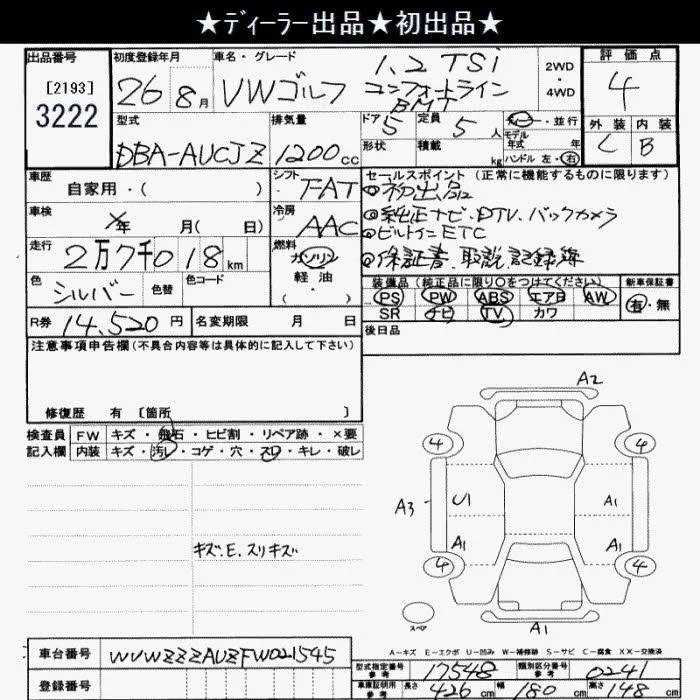 ★ディーラー出品★初出品★
出品番号 初度登録年月 車名・グレード 評価点
[2193] 3222
26年 8月 VWゴルフ 1.2 TSi コンフォートライン BMT 2WD・4WD 4
型式 排気量 ドア 5 定員 5人 ・並行 外装 内装
DBA-AUCJZ 1200cc 形状 積載 kg モデル年式 年 ハンドル 左・右 C B
車歴 自家用・( ) シフト FAT セールスポイント(正常に機能するものに限ります)
◎初出品
車検 年 月( 日) 冷房 AAC ◎純正ナビ、DTV、バックカメラ
◎ビルトインETC
走行 2万7千018km 燃料 ガソリン 軽油 ( ) ◎保証書、取説、記録簿
色 シルバー 色替 色コード
装備品(純正品に限り○をつけてください) 新車保証書
PS PW ABS エアB AW 有・無
SR ナビ TV カワ
R券 14,520円 名変期限 月 日 後日品
注意事項申告欄(不具合内容等は具体的に記入して下さい)
修復歴 有 〔箇所 〕
検査員 FW キズ・飛石・ヒビ割・リペア跡・×要
記入欄 内装 キズ・汚レ・コゲ・穴・スレ・キレ・破レ
キズ、E、スリキズ
A2
4 4
A3 U1 A1
A1 A1
4 4
スペア A1
A-キズ E-エクボ U-凹み W-補修跡 S-サビ C-腐食 XX-交換済
車台番号 WVWZZZAUZFW021545
登録番号
型式指定番号参考 17548 類別区分番号参考 0241
車庫証明用参考 長さ 426cm 幅 180cm 高さ 148cm